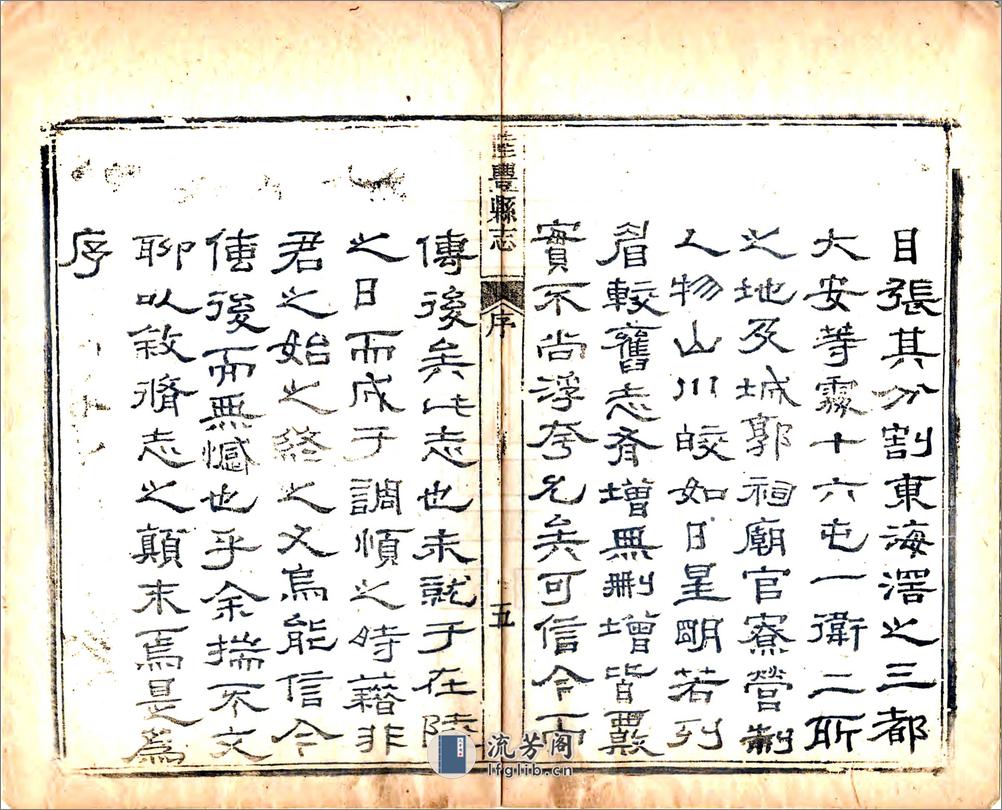 目張其分割東海滘之三都
大安等十六屯一衛二所
之地及城郭祠廟官寮營制
人物山川皎如日星明若列
眉較舊志有增無刪增皆覈
實不尚浮夸允矣可信今而
陸豐縣志
序
五
傳後矣此志也未就于在陸
之日而成于調順之時藉非
君之始之終之又烏能信今
傳後而無憾也乎余揣不文
聊以敘脩志之顛末焉是為
序
流芳阁
lfglib.cn